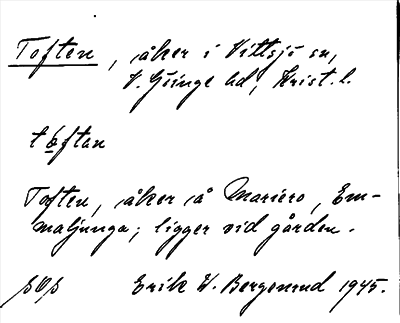 Toften, åker i Vittsjö sn,
V. Göinge hd, Krist. l.
tòftan
Toften, åker å Mariero, Em-
maljunga; ligger vid gården.
Erik W. Bergenrud 1945.